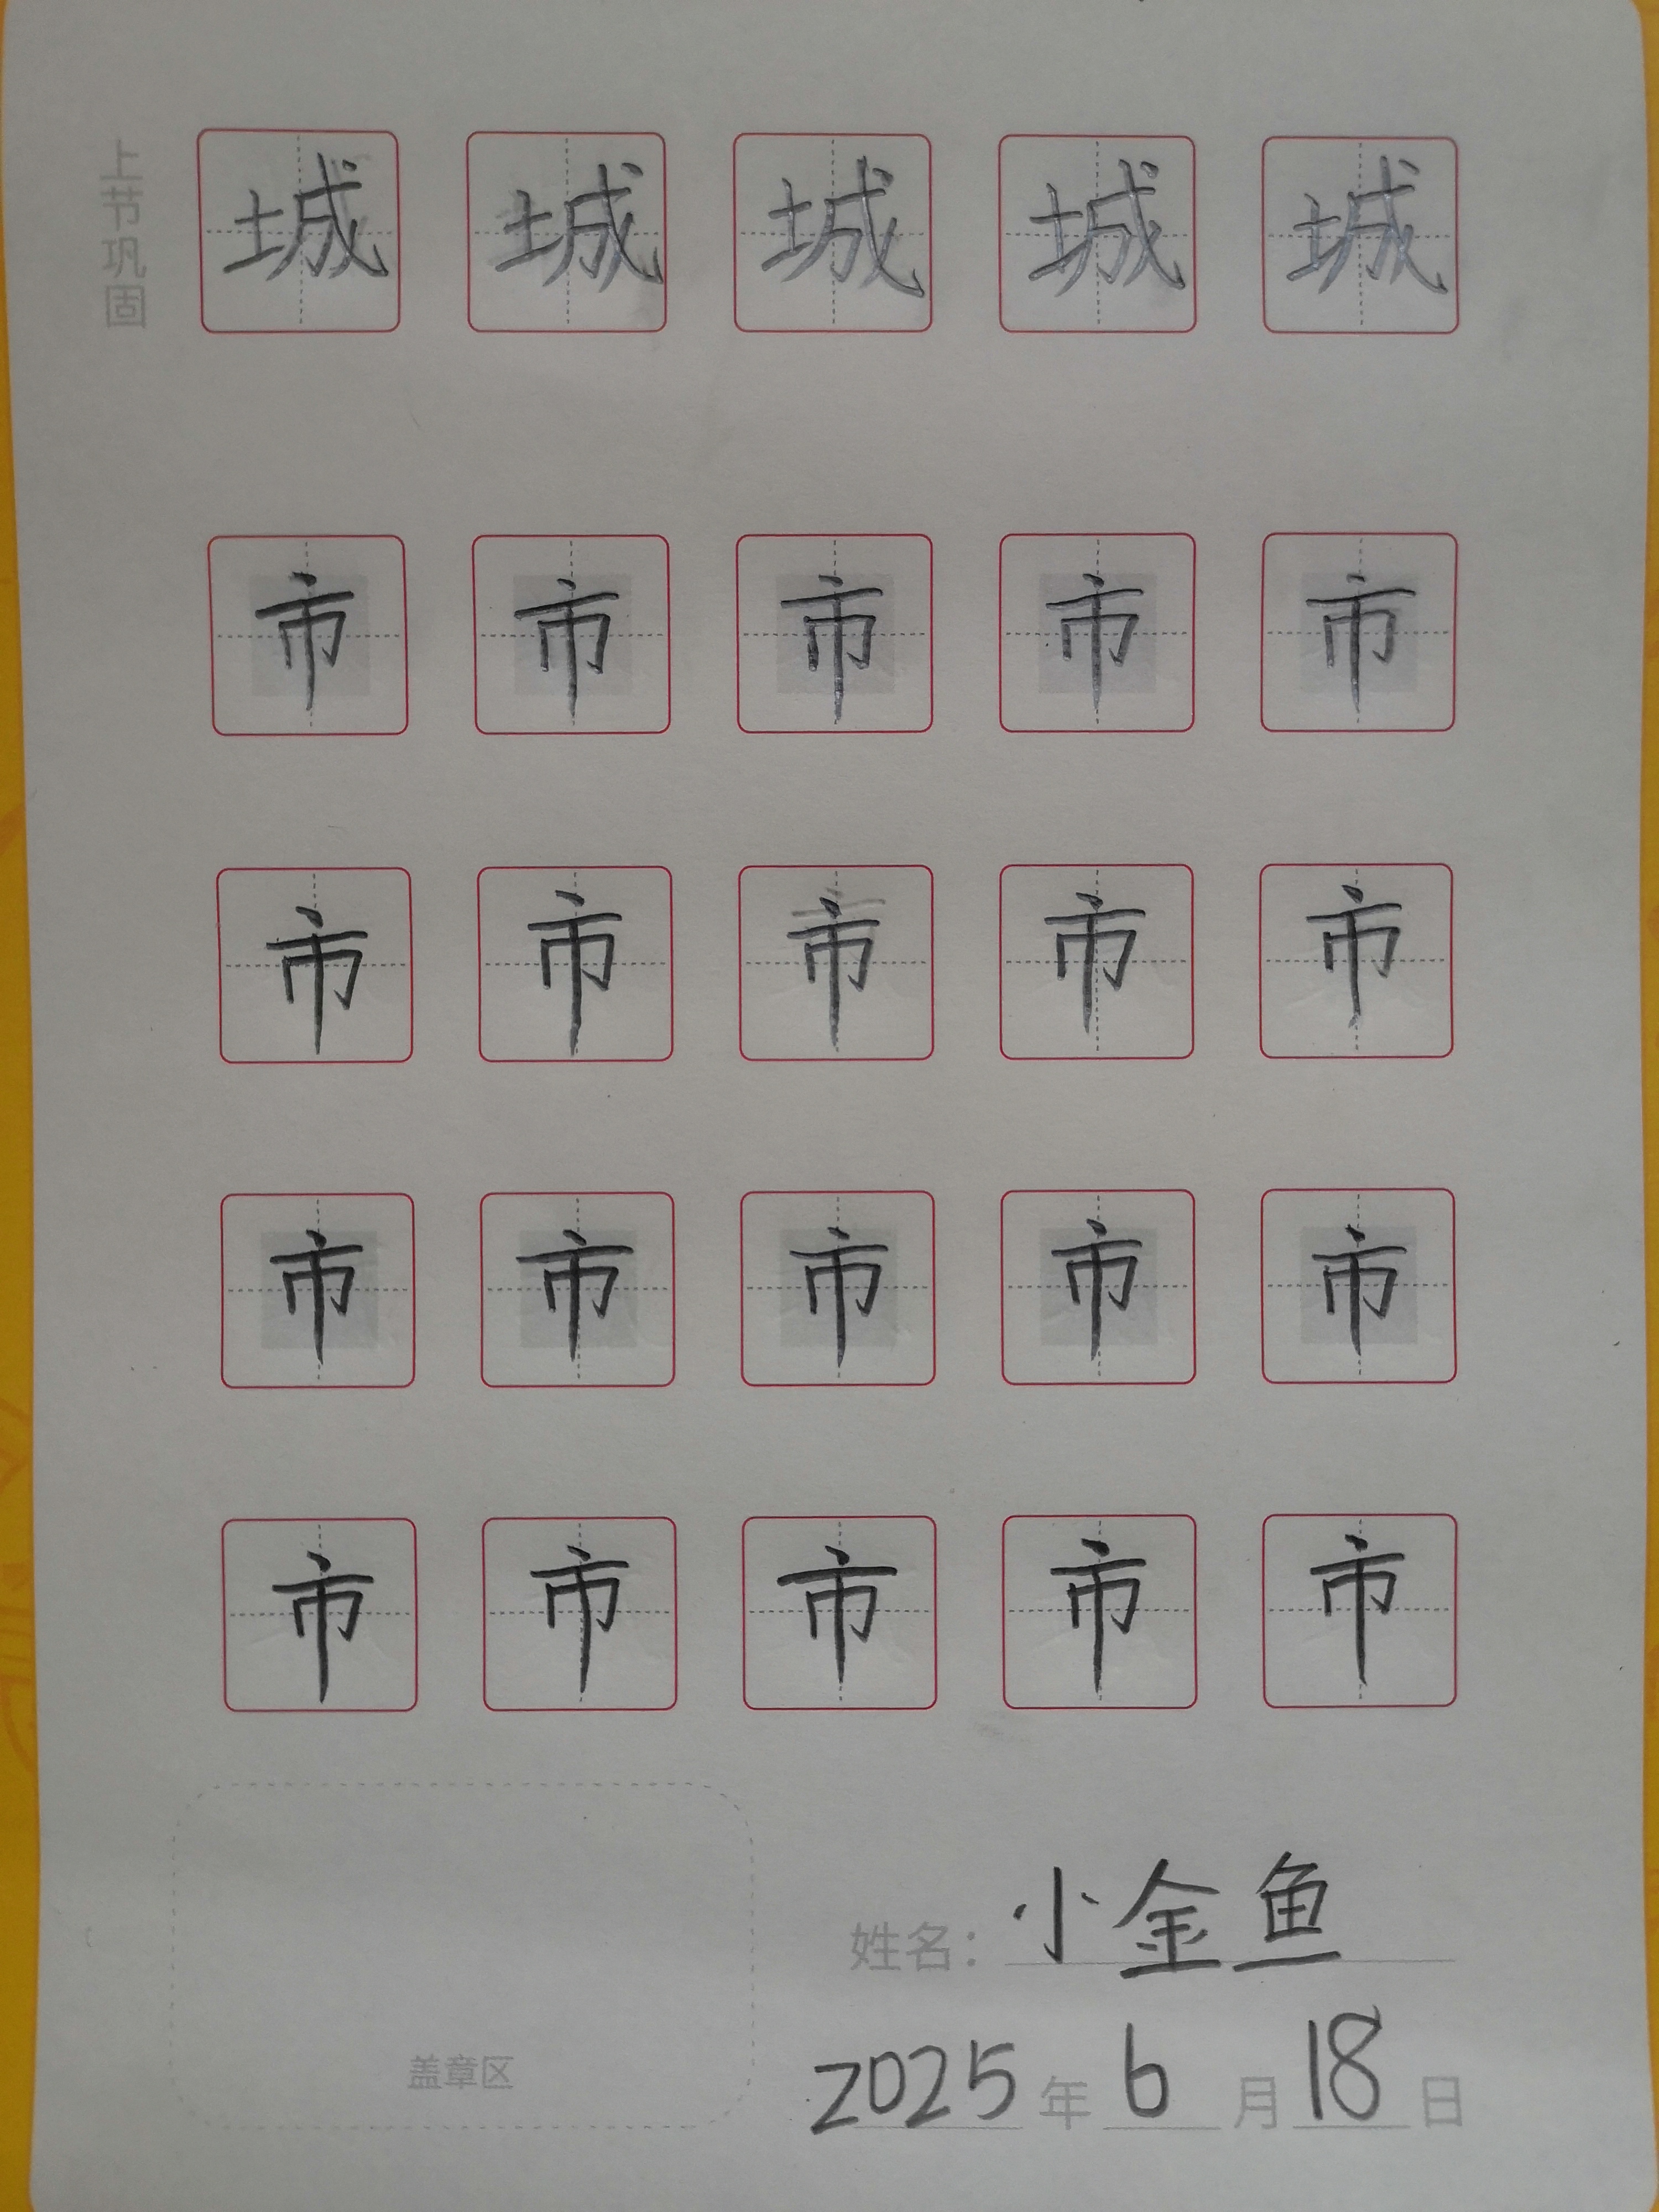 上节巩固
城 城 城 城 城
市 市 市 市 市
市 市 市 市 市
市 市 市 市 市
市 市 市 市 市
姓名：小金鱼
盖章区
2025年6月18日